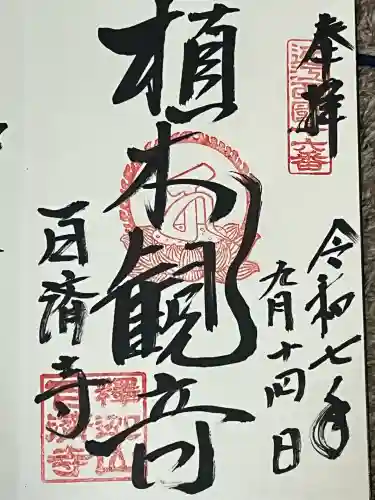 奉拝
近江西國十六番
令和七年
九月十四日
植木観音
百済寺
釋迦山百済寺